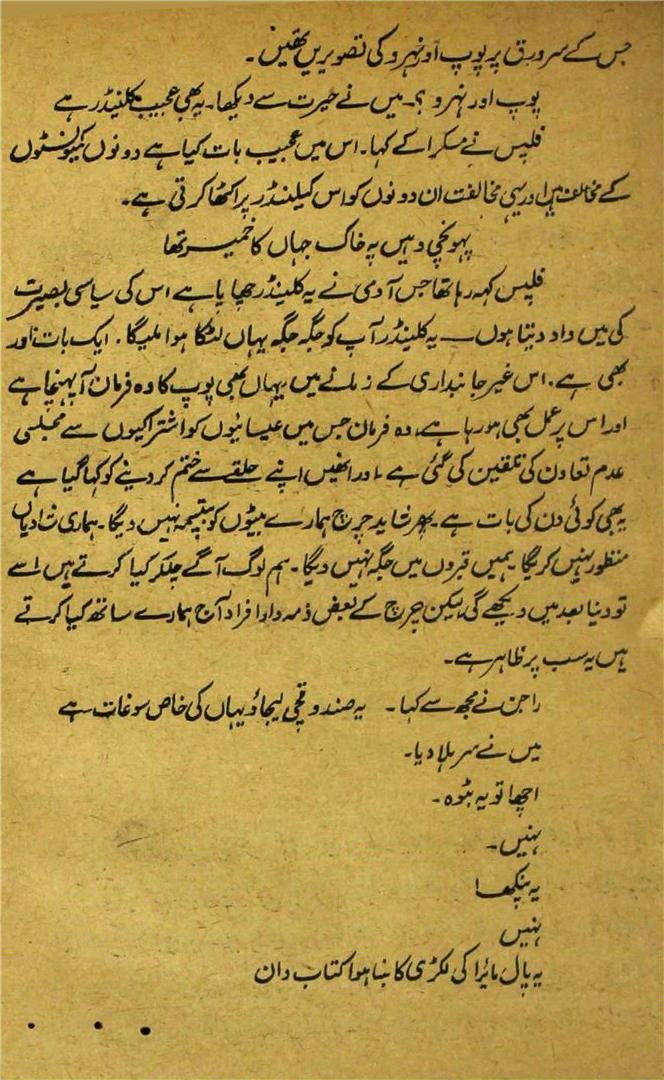 جس کے سرورق پر پوپ اور نہرو کی تصویریں تھیں۔
پوپ اور نہرو؟۔ میں نے حیرت سے دیکھا۔ یہ بھی عجیب کلینڈر ہے
فلپس نے مسکرا کے کہا۔ اس میں عجیب بات کیا ہے دونوں کمیونسٹوں
کے مخالف ہیں اور یہی مخالفت ان دونوں کو اس کیلنڈر پر اکٹھا کرتی ہے۔
پہونچی وہیں پہ خاک جہاں کا خمیر تھا
فلپس کہہ رہا تھا جس آدمی نے یہ کلینڈر چھاپا ہے اس کی سیاسی بصیرت
کی میں داد دیتا ہوں — یہ کلینڈر آپ کو جگہ جگہ یہاں لٹکا ہوا ملیگا۔ ایک بات اور
بھی ہے۔ اس غیر جانبداری کے زمانے میں یہاں بھی پوپ کا وہ فرمان آ پہنچا ہے
اور اس پر عمل بھی ہو رہا ہے، وہ فرمان جس میں عیسائیوں کو اشتراکیوں سے مجلسی
عدم تعاون کی تلقین کی گئی ہے۔ اور انھیں اپنے حلقے سے ختم کر دینے کو کہا گیا ہے
یہ بھی کوئی دن کی بات ہے پھر شاید چرچ ہمارے بیٹوں کو بپتسمہ نہیں دیگا۔ ہماری شادیاں
منظور نہیں کریگا۔ ہمیں قبروں میں جگہ نہیں دیگا۔ ہم لوگ آگے چلکر کیا کرتے ہیں اسے
تو دنیا بعد میں دیکھے گی لیکن چرچ کے بعض ذمہ دار افراد آج ہمارے ساتھ کیا کرتے
ہیں یہ سب پر ظاہر ہے۔
راجن نے مجھ سے کہا۔ یہ صندوقچی لیجاؤ یہاں کی خاص سوغات ہے
میں نے سر ہلا دیا۔
اچھا تو یہ بٹوہ۔
نہیں۔
یہ پنکھا
نہیں
یہ پال مائرا کی لکڑی کا بنا ہوا کتاب دان
• • •